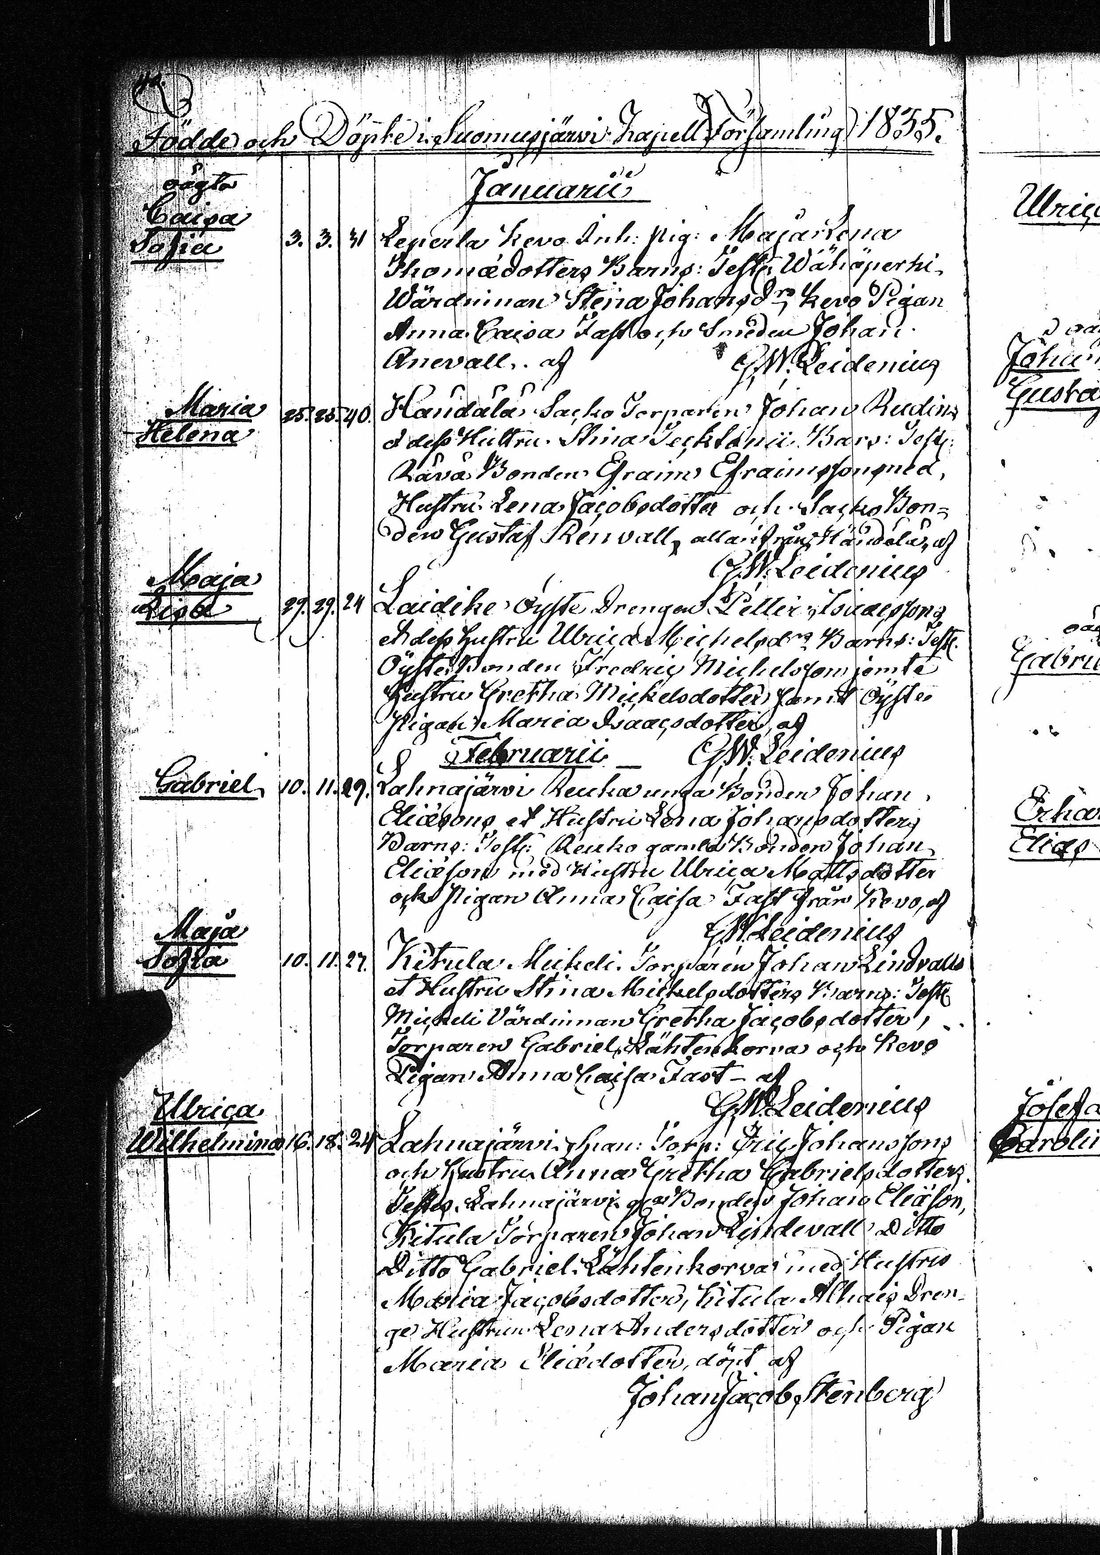 Födde och Döpte i Suomusjärvi Capell Församling 1835.
Januarii
oägta
Caisa
Sofia
3. 3. 31
Leperla Kevo Inh: pig: Maja Lena
Thomædotters Barns: Test: Wähäperhi
Wärdinnan Stina Johansdrs, Kevo Pigan
Anna Caisa Fast och Smeden Johan
Anevall. af G.W. Leidenius
Maria
Helena
25. 25. 40.
Händälä Sacko Torparen Johan Rudins
et dess Hustru Stina Barns: Test:
Rävä Bonden Efraim Efraimsson med
Hustru Lena Jacobsdotter och Sacko Bon=
den Gustaf Renvall, alla ifrån Händälä, af
G.W. Leidenius
Maja
Lisa
29. 29. 24
Laidike Öyste Drengen Petter Isaacssons
et dess Hustru Ulrica Michelsdrs Barns: Test:
Öyste Bonden Fredric Michelsson jemte
Hustru Gretha Mickelsdotter samt Öyste
Pigan Maria Isaacsdotter, af
Februarii G.W. Leidenius
Gabriel
10. 11. 29.
Lahnajärvi unga Bonden Johan
Eliæsons et Hustru Lena Johansdotters
Barns: Test: gamla Bonden Johan
Eliæson med Hustru Ulrica Mattsdotter
och Pigan Anna Caisa Fast från Kevo, af
G.W. Leidenius
Maja
Sofia
10. 11. 27.
Kitula Mickeli Torparen Johan Lindvalls
et Hustru Stina Mickelsdotters Barns: Test:
Mickeli Värdinnan Gretha Jacobsdotter,
Torparen Gabriel Lähtenkorva och Kevo
Pigan Anna Caisa Fast – af
G.W. Leidenius
Ulrica
Wilhelmina
16. 18. 24
Lahnajärvi Torp: Eric Johanssons
och Hustru Anna Gretha Gabrielsdotters.
Testes Lahnajärvi Bonden Johan Eliæson,
Kitula Torparen Johan Lindevall Ditto
Ditto Gabriel Lähtenkorva med Hustru
Maria Jacobsdotter, Kitula Alhais Dren-
ge Hustrun Lena Andersdotter och Pigan
Maria Eliædotter, döpt af
Johan Jacob Stenberg